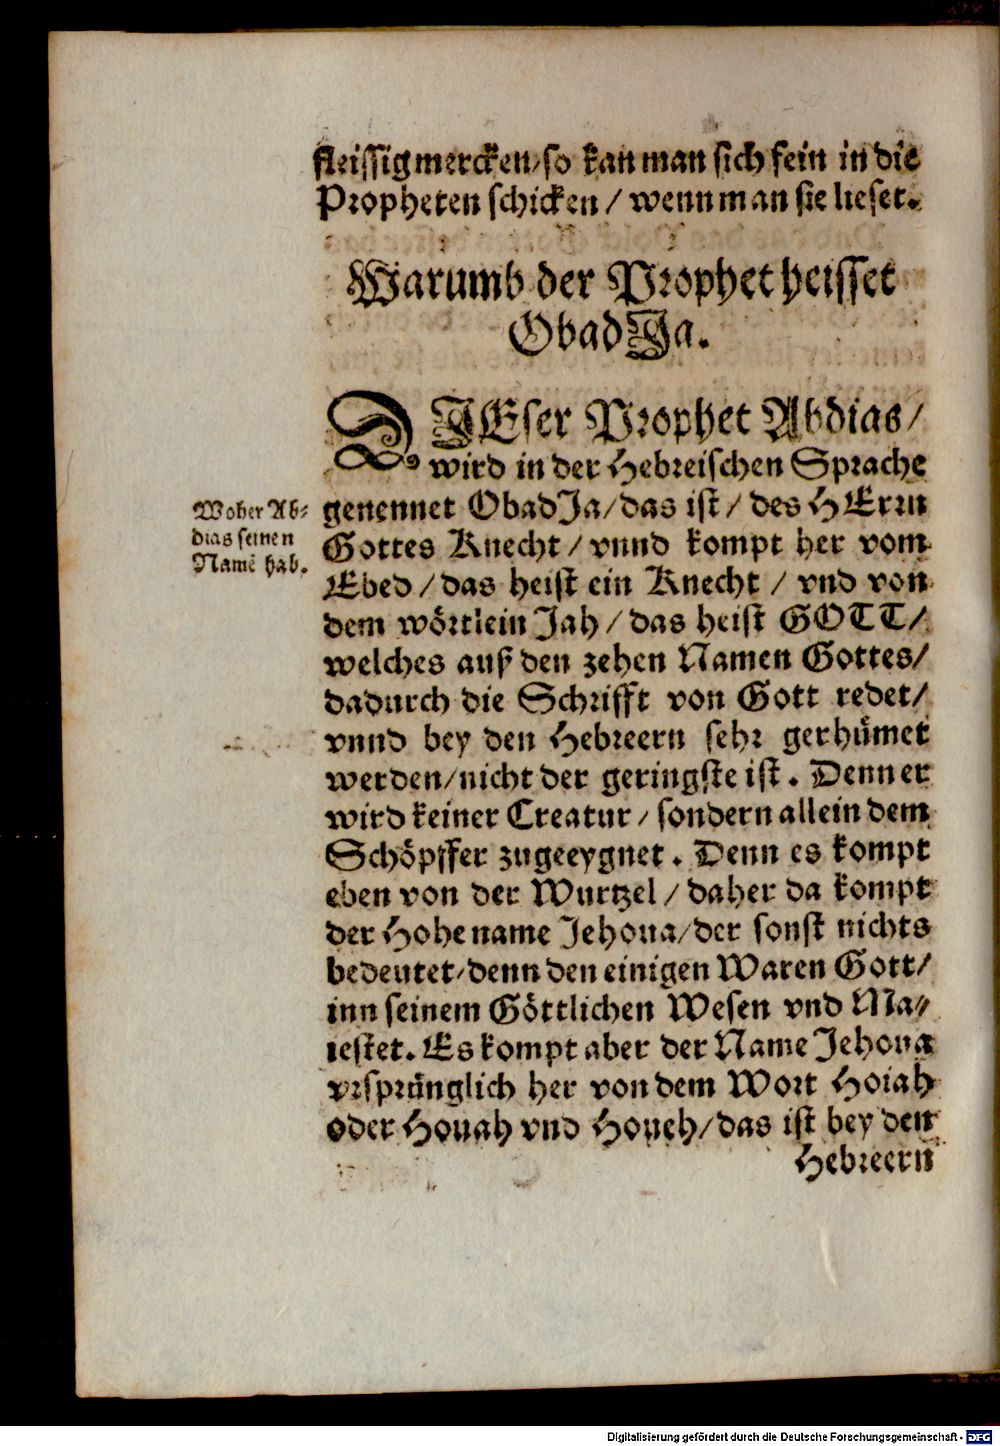 fleissig mercken/ so kan man sich fein in die
Propheten schicken / wenn man sie lieset.
Warumb der Prophet heisset
ObadJa.
DJEser Prophet Abdias/
wird in der Hebreischen Sprache
genennet ObadJa/das ist/ des HErrn
Gottes Knecht/ vnnd kompt her vom
Ebed/das heist ein Knecht / vnd von
dem wörtlein Jah/ das heist GOTT/
welches auß den zehen Namen Gottes/
dadurch die Schrifft von Gott redet/
vnnd bey den Hebreern sehr gerhümet
werden/nicht der geringste ist. Denn er
wird keiner Creatur/ sondern allein dem
Schöpffer zugeeygnet. Denn es kompt
eben von der Wurtzel/ daher da kompt
der Hohe name Jehoua/der sonst nichts
bedeutet/denn den einigen Waren Gott/
inn seinem Göttlichen Wesen vnd Ma-
iestet. Es kompt aber der Name Jehoua
vrsprünglich her von dem Wort Hoiah
oder Houah vnd Houeh/das ist bey den
Hebreern
Woher Ab-
dias seinen
Namē hab.
Digitalisierung gefördert durch die Deutsche Forschungsgemeinschaft - DFG